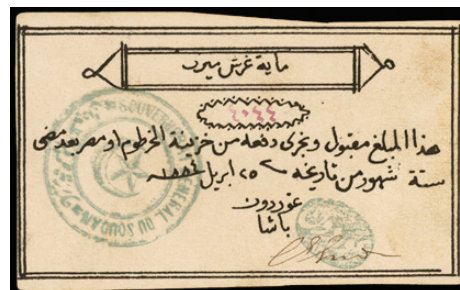 ماية غرش ميرى
٤٠٤٤
هذا المبلغ مقبول ويجرى دفعه من خزينة الخرطوم او مصر بعد مضى
ستة شهور من تاريخه ٢٥ ابريل ١٨٨٤
غوردون
باشا
GOUVERNEMENT GENERAL DU SOUDAN